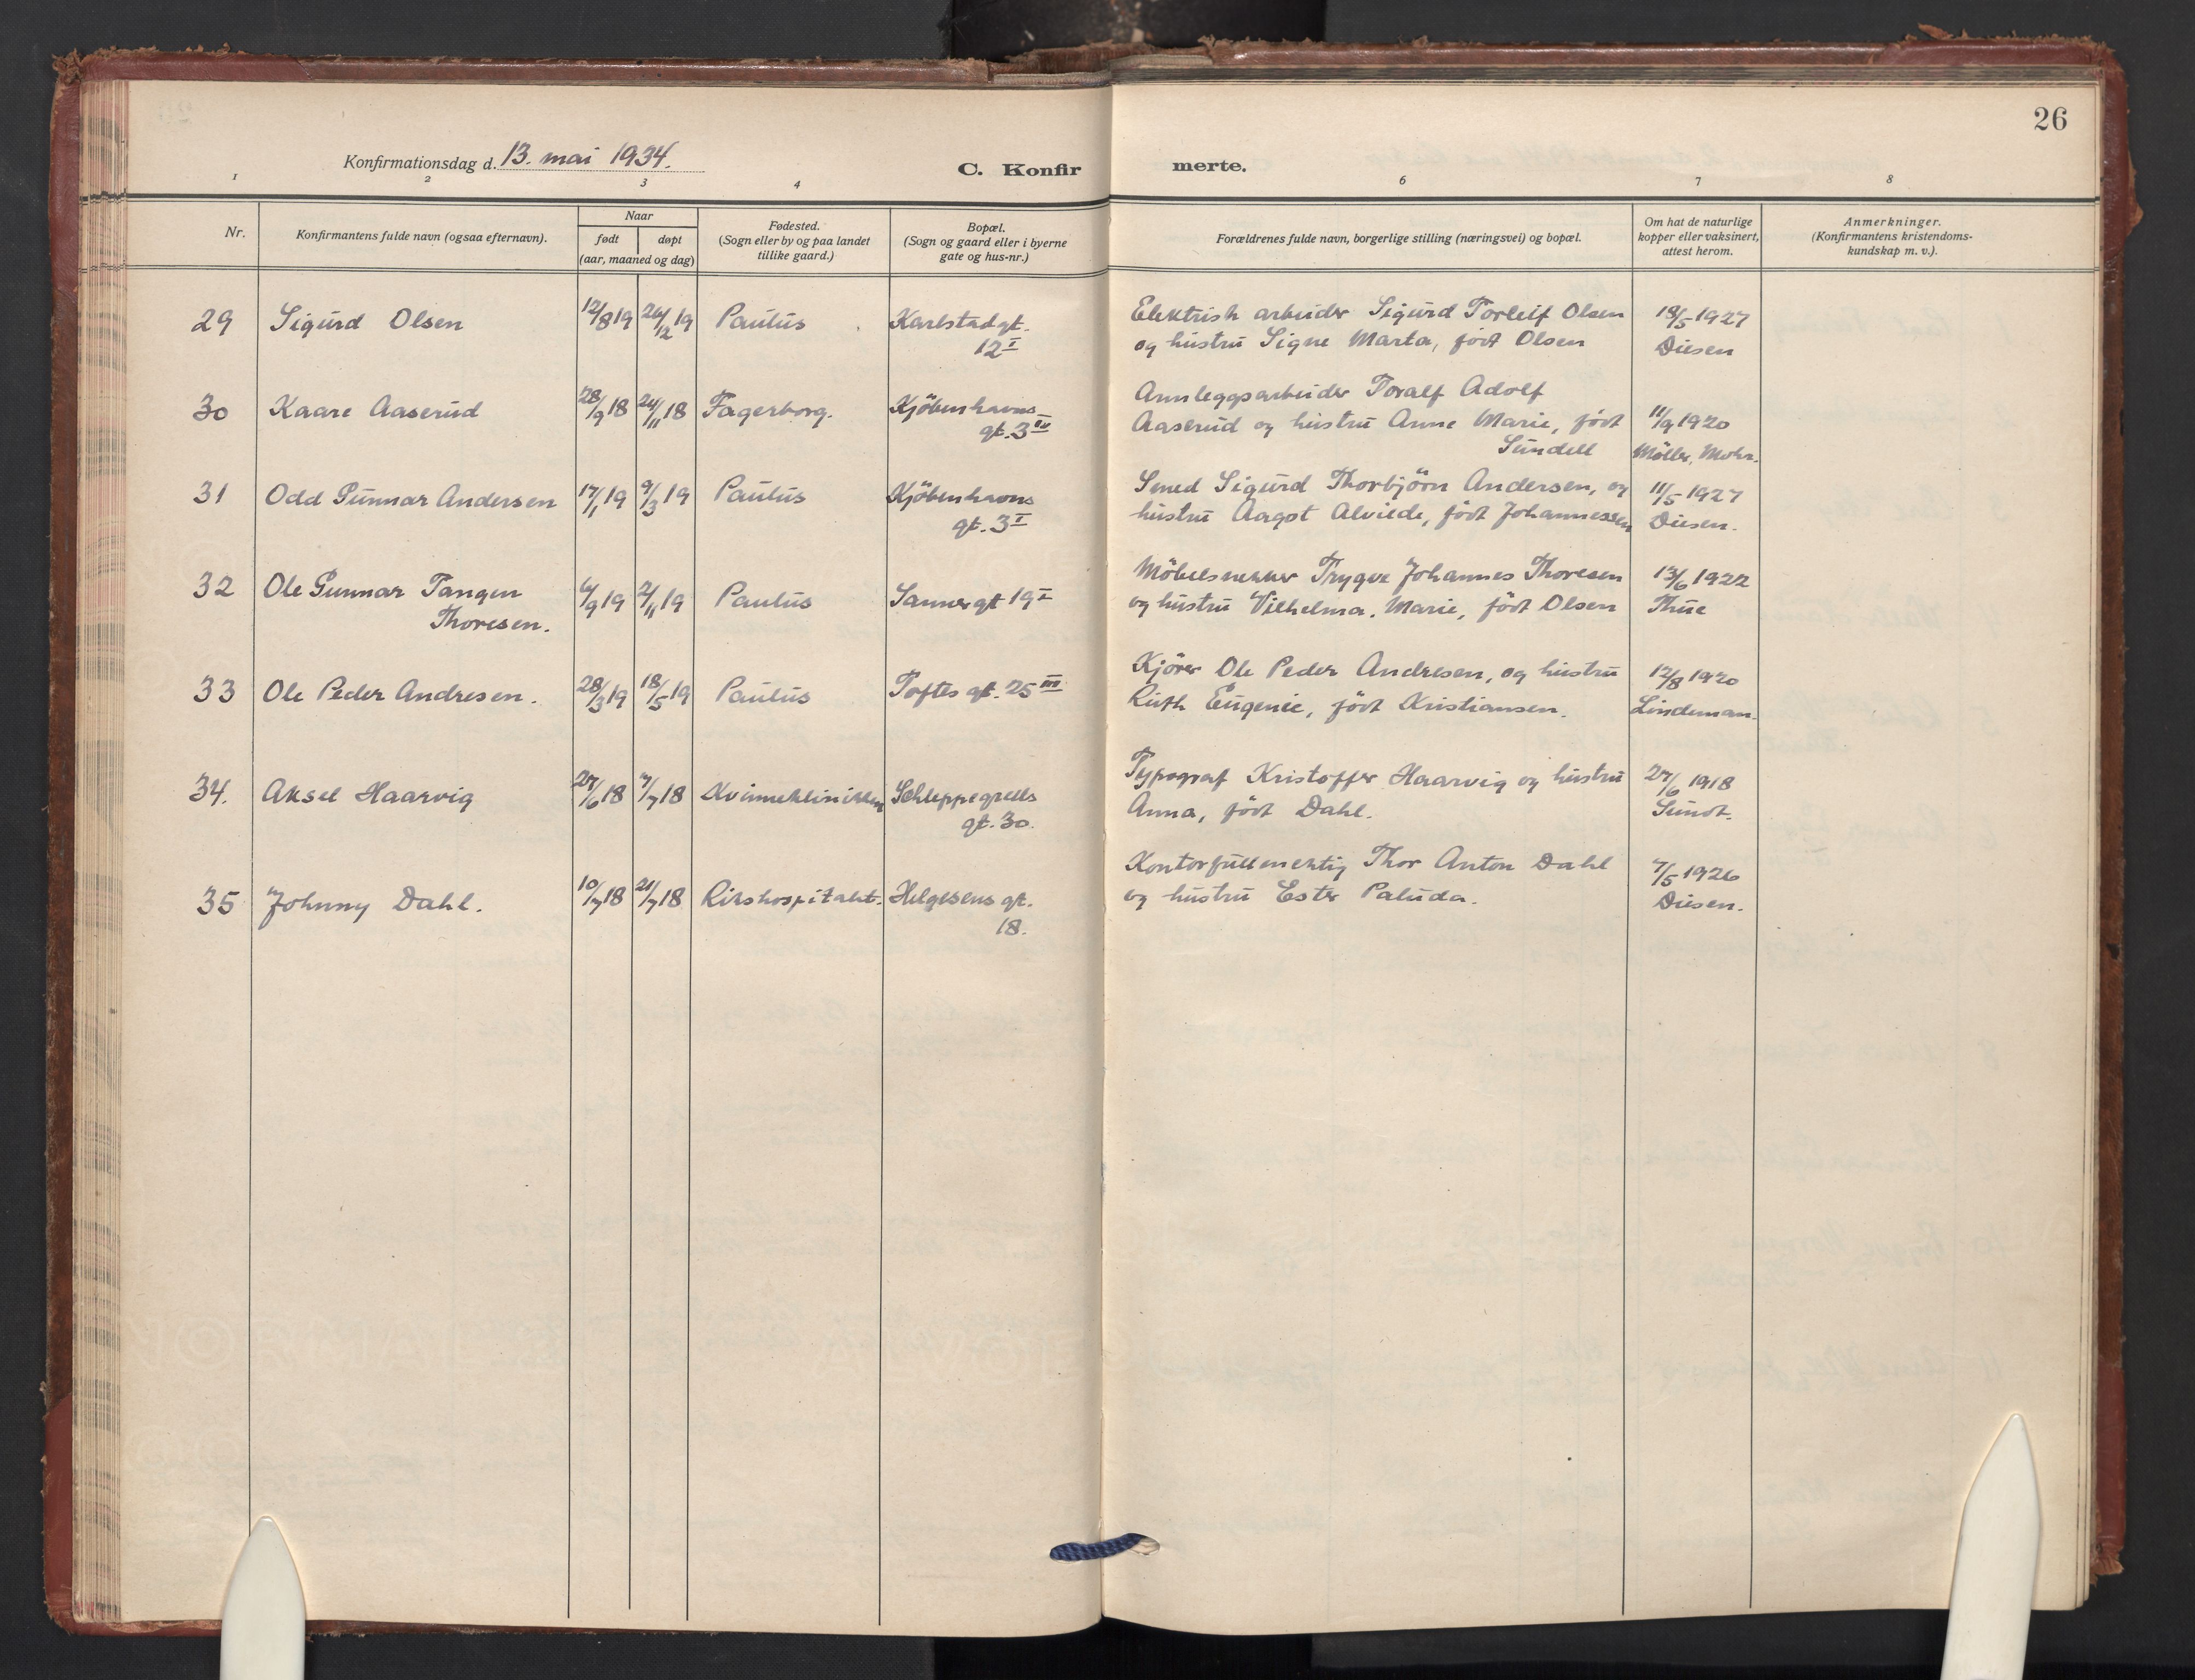 26
Konfirmationsdag d. 13. mai 1934.
C. Konfir
merte.
1 2 3 4 6 7 8
Nr.
Konfirmantens fulde navn (ogsaa efternavn).
Naar
født døpt
(aar, maaned og dag)
Fødested.
(Sogn eller by og paa landet
tillike gaard.)
Bopæl.
(Sogn og gaard eller i byerne
gate og hus-nr.)
Forældrenes fulde navn, borgerlige stilling (næringsvei) og bopæl.
Om hat de naturlige
kopper eller vaksinert,
attest herom.
Anmerkninger.
(Konfirmantens kristendoms-
kundskap m. v.).
29 Sigurd Olsen 12/8 19 26/12 19 Paulus Karlstadgt. Elektrisk arbeider Sigurd Torleif Olsen 18/5 1927
12 I og hustru Signe Marta, født Olsen Diesen
30 Kaare Aaserud 28/9 18 24/11 18 Fagerborg. Kjöbenhavns- Annleggsarbeider Toralf Adolf
gt. 3 IV Aaserud og hustru Anne Marie, født 11/9 1920
Sundell Möller, Mohr.
31 Odd Gunnar Andersen 17/1 19 9/3 19 Paulus Kjöbenhavns Smed Sigurd Thorbjörn Andersen, og 11/5 1927
gt. 3 I hustru Aagot Alvilde, født Johannessen Diesen.
32 Ole Gunnar Tangen 6/9 19 2/11 19 Paulus Sannergt 19 I Möbelsnekker Trygve Johannes Thoresen 13/6 1922
Thoresen. og hustru Vilhelma. Marie, födt Olsen Thue
33 Ole Peder Andresen. 28/3 19 18/5 19 Paulus Toftes gt. 25 III Kjörer Ole Peder Andresen, og hustru 12/8 1920
Ruth Eugenie, födt Kristiansen. Lindeman.
34. Aksel Haarvig 27/6 18 7/7 18 Kvinneklinikken Schleppegrells Typograf Kristoffer Haarvig og hustru 27/6 1918
gt. 30. Anna, födt Dahl. Sundt.
35 Johnny Dahl. 10/7 18 21/7 18 Rikshospitalet. Helgesens gt. Kontorfullmektig Thor Anton Dahl 7/5 1926
18. og hustru Ester Paluda. Diesen.